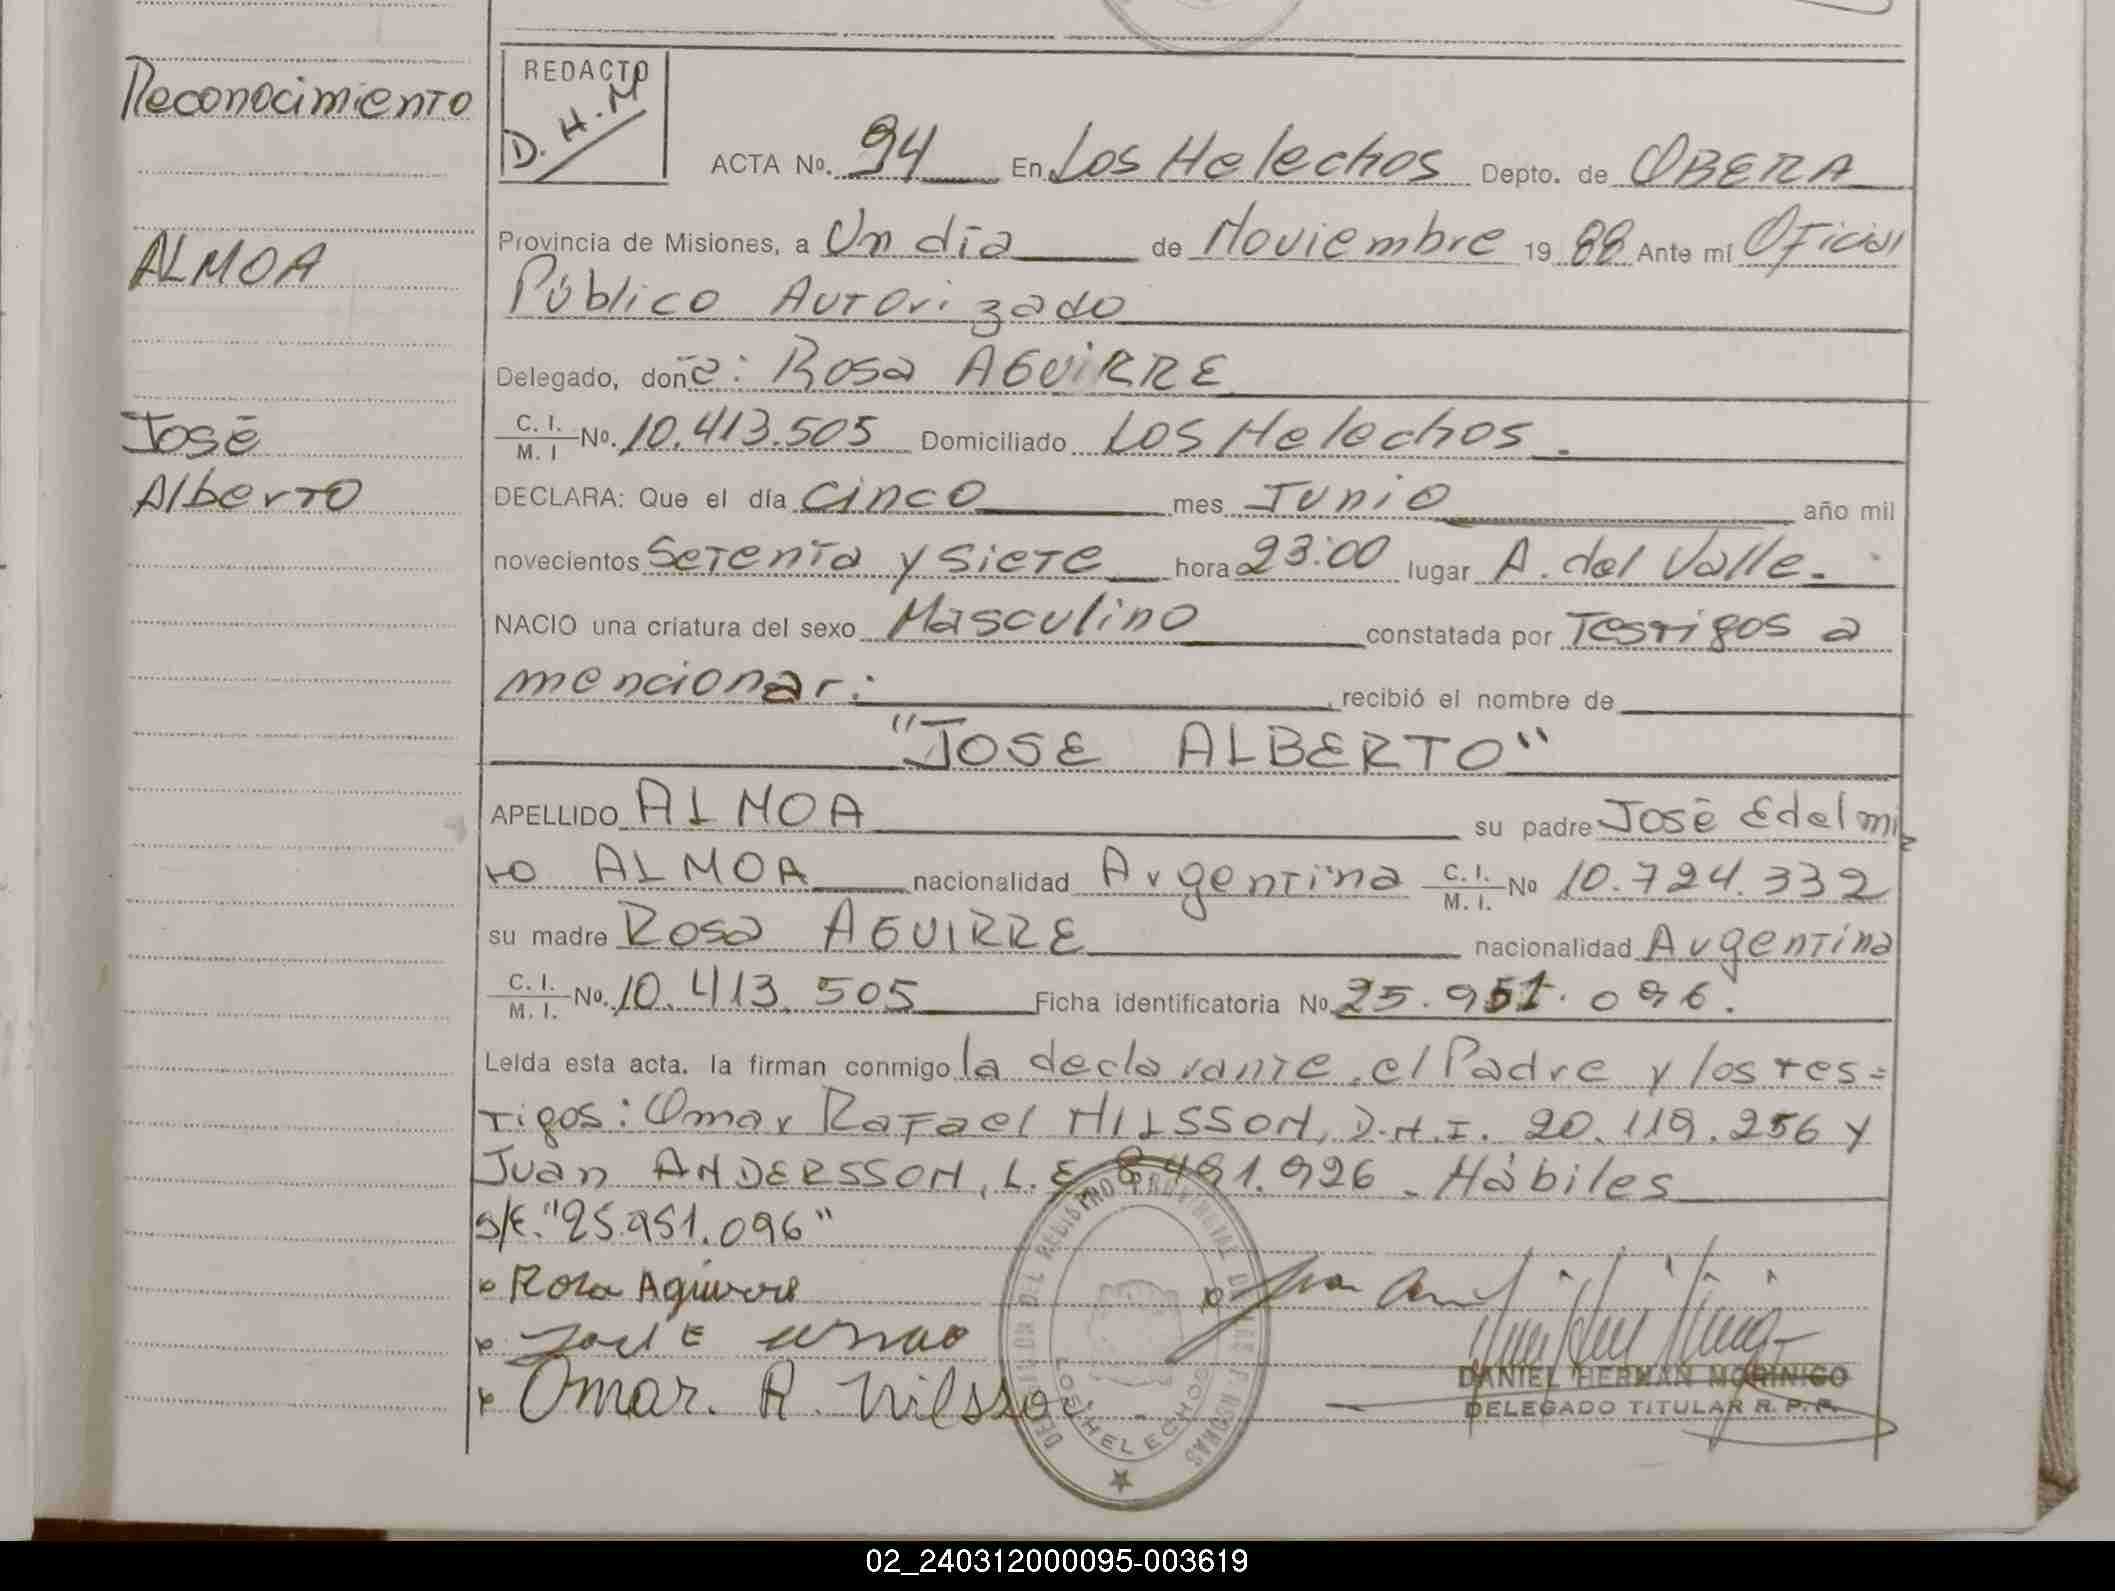 Reconocimiento
ALMOA
José
Alberto
REDACTO
D.H.M
ACTA Nº. 94 En Los Helechos Depto. de OBERA
Provincia de Misiones, a Un día de Noviembre 19 88 Ante mí Oficial
Público Autorizado
Delegado, doña: Rosa AGUIRRE
C. I. / M. I Nº. 10.413.505 Domiciliado Los Helechos.
DECLARA: Que el día cinco mes Junio año mil
novecientos Setenta y siete hora 23:00 lugar A. del Valle.
NACIO una criatura del sexo Masculino constatada por Testigos a
mencionar: recibió el nombre de
"JOSE ALBERTO"
APELLIDO ALMOA su padre José Edelmi
ro ALMOA nacionalidad Argentina C. I. / M. I. Nº 10.724.332
su madre Rosa AGUIRRE nacionalidad Argentina
C. I. / M. I. Nº. 10.413.505 Ficha identificatoria Nº 25.951.096.
Leída esta acta. la firman conmigo la declarante, el Padre y los tes=
tigos: Omar Rafael NILSSON, D.N.I. 20.119.256 y
Juan ANDERSSON, L.E. 8.491.926. Hábiles
s/E. "25.951.096"
Rosa Aguirre
Omar. R. Nilsson
DELEGACION DEL REGISTRO PROVINCIAL DE LAS PERSONAS
LOS HELECHOS
DANIEL HERNAN MORINIGO
DELEGADO TITULAR R. P. P.
02_240312000095-003619